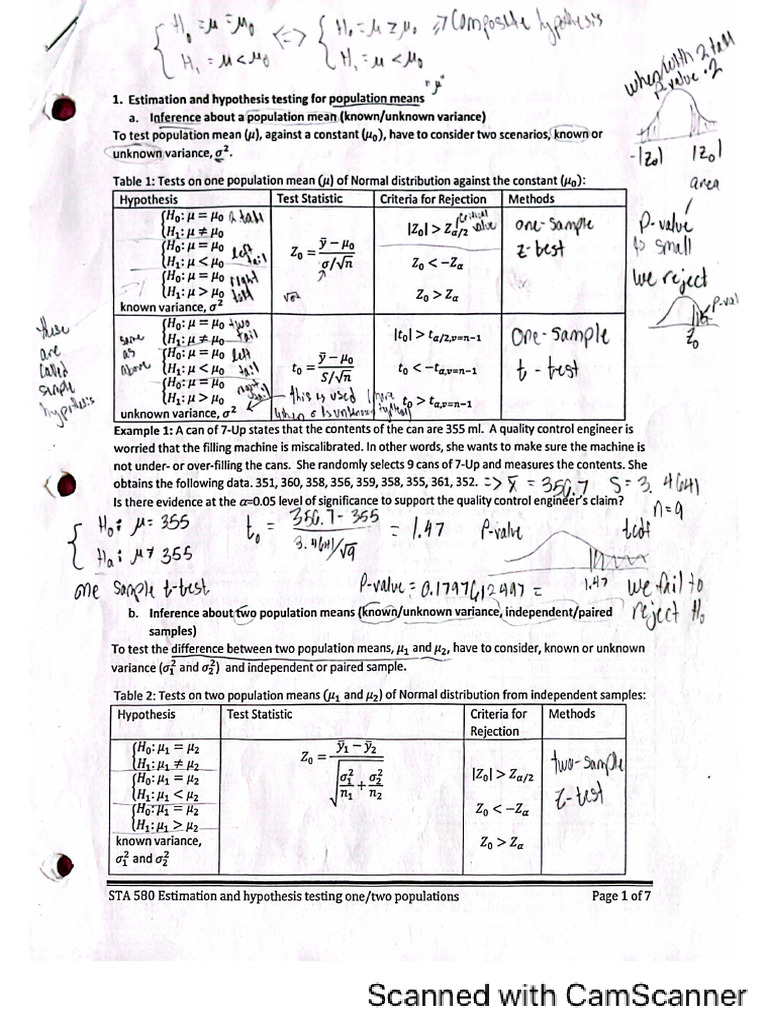 H₀ = μ = μ₀ <=> H₀ = μ ≥ μ₀ => Composite hypothesis
H₁ = μ < μ₀ H₁ = μ < μ₀
"μ"
when with 2 tail
p-value · 2
1. Estimation and hypothesis testing for population means
a. Inference about a population mean (known/unknown variance)
To test population mean (μ), against a constant (μ₀), have to consider two scenarios, known or
unknown variance, σ².
-|Z₀| |Z₀|
area
p-value
is small
we reject
p-val
Z₀
Table 1: Tests on one population mean (μ) of Normal distribution against the constant (μ₀):
Hypothesis Test Statistic Criteria for Rejection Methods
{H₀: μ = μ₀ 2 tail
{H₁: μ ≠ μ₀
{H₀: μ = μ₀ left
{H₁: μ < μ₀ tail
{H₀: μ = μ₀ right
{H₁: μ > μ₀ tail
known variance, σ²
Z₀ = (ȳ − μ₀)/(σ/√n)
√σ²
|Z₀| > Z_α/2 critical value
Z₀ < −Z_α
Z₀ > Z_α
one-sample
z-test
these
are
called
simple
hypothesis
same
as
above
{H₀: μ = μ₀ two
{H₁: μ ≠ μ₀ tail
{H₀: μ = μ₀ left
{H₁: μ < μ₀ tail
{H₀: μ = μ₀ right
{H₁: μ > μ₀ tail
unknown variance, σ²
t₀ = (ȳ − μ₀)/(S/√n)
this is used
when σ is unknown
|t₀| > t_α/2,v=n−1
t₀ < −t_α,v=n−1
t₀ > t_α,v=n−1
one-sample
t-test
Example 1: A can of 7-Up states that the contents of the can are 355 ml. A quality control engineer is
worried that the filling machine is miscalibrated. In other words, she wants to make sure the machine is
not under- or over-filling the cans. She randomly selects 9 cans of 7-Up and measures the contents. She
obtains the following data. 351, 360, 358, 356, 359, 358, 355, 361, 352. => x̄ = 356.7 S = 3.4641
Is there evidence at the α=0.05 level of significance to support the quality control engineer's claim? n=9
{ H₀: μ = 355
Hₐ: μ ≠ 355
t₀ = (356.7 - 355)/(3.4641/√9) = 1.47
p-value tcdf
1.47
one sample t-test p-value = 0.1797612497 = we fail to
reject H₀
b. Inference about two population means (known/unknown variance, independent/paired
samples)
To test the difference between two population means, μ₁ and μ₂, have to consider, known or unknown
variance (σ₁² and σ₂²) and independent or paired sample.
Table 2: Tests on two population means (μ₁ and μ₂) of Normal distribution from independent samples:
Hypothesis Test Statistic Criteria for Rejection Methods
{H₀: μ₁ = μ₂
{H₁: μ₁ ≠ μ₂
{H₀: μ₁ = μ₂
{H₁: μ₁ < μ₂
{H₀: μ₁ = μ₂
{H₁: μ₁ > μ₂
known variance,
σ₁² and σ₂²
Z₀ = (ȳ₁ − ȳ₂)/√(σ₁²/n₁ + σ₂²/n₂)
|Z₀| > Z_α/2
Z₀ < −Z_α
Z₀ > Z_α
two-sample
z-test
STA 580 Estimation and hypothesis testing one/two populations Page 1 of 7
Scanned with CamScanner